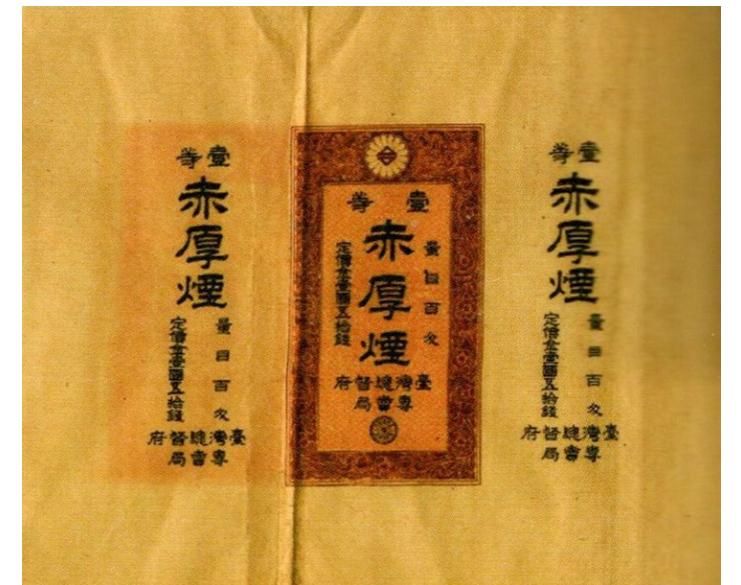 壹等
赤厚煙
量目百匁
定價金壹圓五拾錢
臺灣總督府
專賣局
壹等
赤厚煙
量目百匁
定價金壹圓五拾錢
臺灣總督府
專賣局
壹等
赤厚煙
量目百匁
定價金壹圓五拾錢
臺灣總督府
專賣局